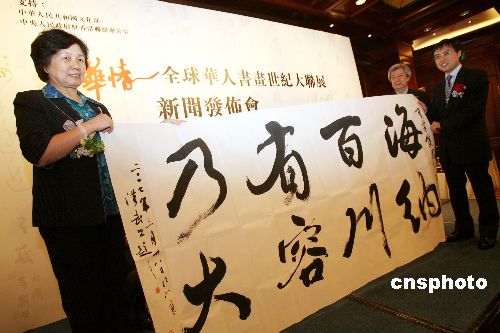 支持：
中華人民共和國文化部
中央人民政府駐香港聯絡辦公室
華情
全球華人書畫世紀大聯展
新聞發佈會
海納
百川
有容
乃大
二〇〇七年二月
cnsphoto